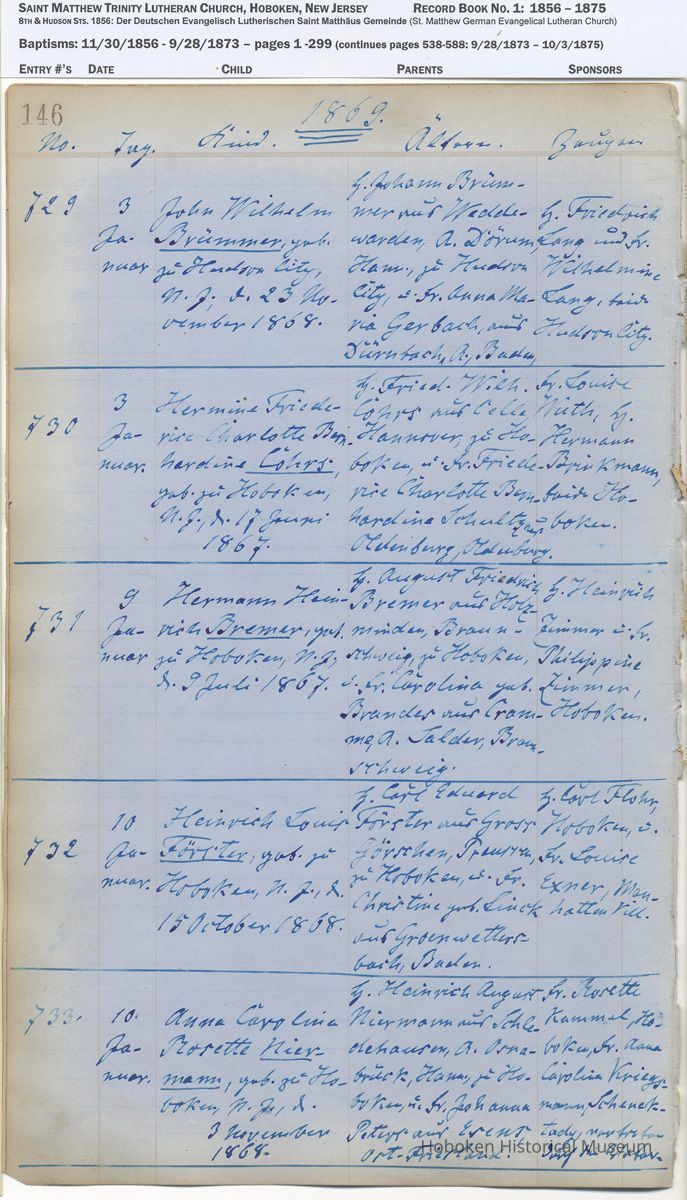 SAINT MATTHEW TRINITY LUTHERAN CHURCH, HOBOKEN, NEW JERSEY RECORD BOOK NO. 1: 1856 – 1875
8TH & HUDSON STS. 1856: Der Deutschen Evangelisch Lutherischen Saint Matthäus Gemeinde (St. Matthew German Evangelical Lutheran Church)
Baptisms: 11/30/1856 - 9/28/1873 – pages 1 -299 (continues pages 538-588: 9/28/1873 – 10/3/1875)
ENTRY #'S DATE CHILD PARENTS SPONSORS
146
1869.
No. Tag. Kind. Ältern. Zeugen
729
3
Ja-
nuar
John Wilhelm
Brümmer, geb.
zu Hudson City,
N. J., d. 23 No-
vember 1868.
H. Johann Brüm-
mer aus Wedde-
warden, A. Dorum,
Hann., zu Hudson
City, u. Fr. Anna Ma-
ria Gerbach, aus
Dürnbach, A., Baden,
H. Friedrich
Lang und Fr.
Wilhelmine
Lang, beide
Hudson City.
730
3
Ja-
nuar.
Hermine Friede-
rice Charlotte Bern-
hardine Cöhrs,
geb. zu Hoboken,
N. J., d. 17 Juni
1867.
H. Fried. Wilh.
Cöhrs aus Celle,
Hannover, zu Ho-
boken, u. Fr. Friede-
rice Charlotte Bern-
hardina Schultz, aus
Oldenburg, Oldenburg.
Fr. Louise
Wuth, H.
Hermann
Brinkmann,
beide Ho-
boken.
731
9
Ja-
nuar
Hermann Hein-
rich Bremer, geb.
zu Hoboken, N. J.,
d. 9 Juli 1867.
H. August Friedrich
Bremer aus Holz-
minden, Braun-
schweig, zu Hoboken,
u. Fr. Carolina geb.
Brandes aus Cram-
me, A. Salder, Braun-
schweig.
H. Heinrich
Zimmer u. Fr.
Philippine
Zimmer,
Hoboken.
732
10
Ja-
nuar.
Heinrich Louis
Förster, geb. zu
Hoboken, N. J., d.
15 October 1868.
H. Carl Eduard
Förster aus Gross
Görschen, Preussen,
zu Hoboken, u. Fr.
Christine geb. Linck
aus Groenwetters-
bach, Baden.
H. Carl Flohr,
Hoboken, u.
Fr. Louise
Exner, Man-
hatten Vill.
733.
10.
Ja-
nuar.
Anna Carolina
Rosette Nier-
mann, geb. zu Ho-
boken, N. J., d.
3 November
1868.
H. Heinrich August
Niermann aus Schle-
dehausen, A. Osna-
brück, Hann., zu Ho-
boken, u. Fr. Johanna
Peters aus Esens
Ost-Friesland.
Fr. Rosette
Kammel, Ho-
boken, Fr. Anna
Carolina Kriegs-
mann, Schenek-
tady,
Hoboken Historical Museum